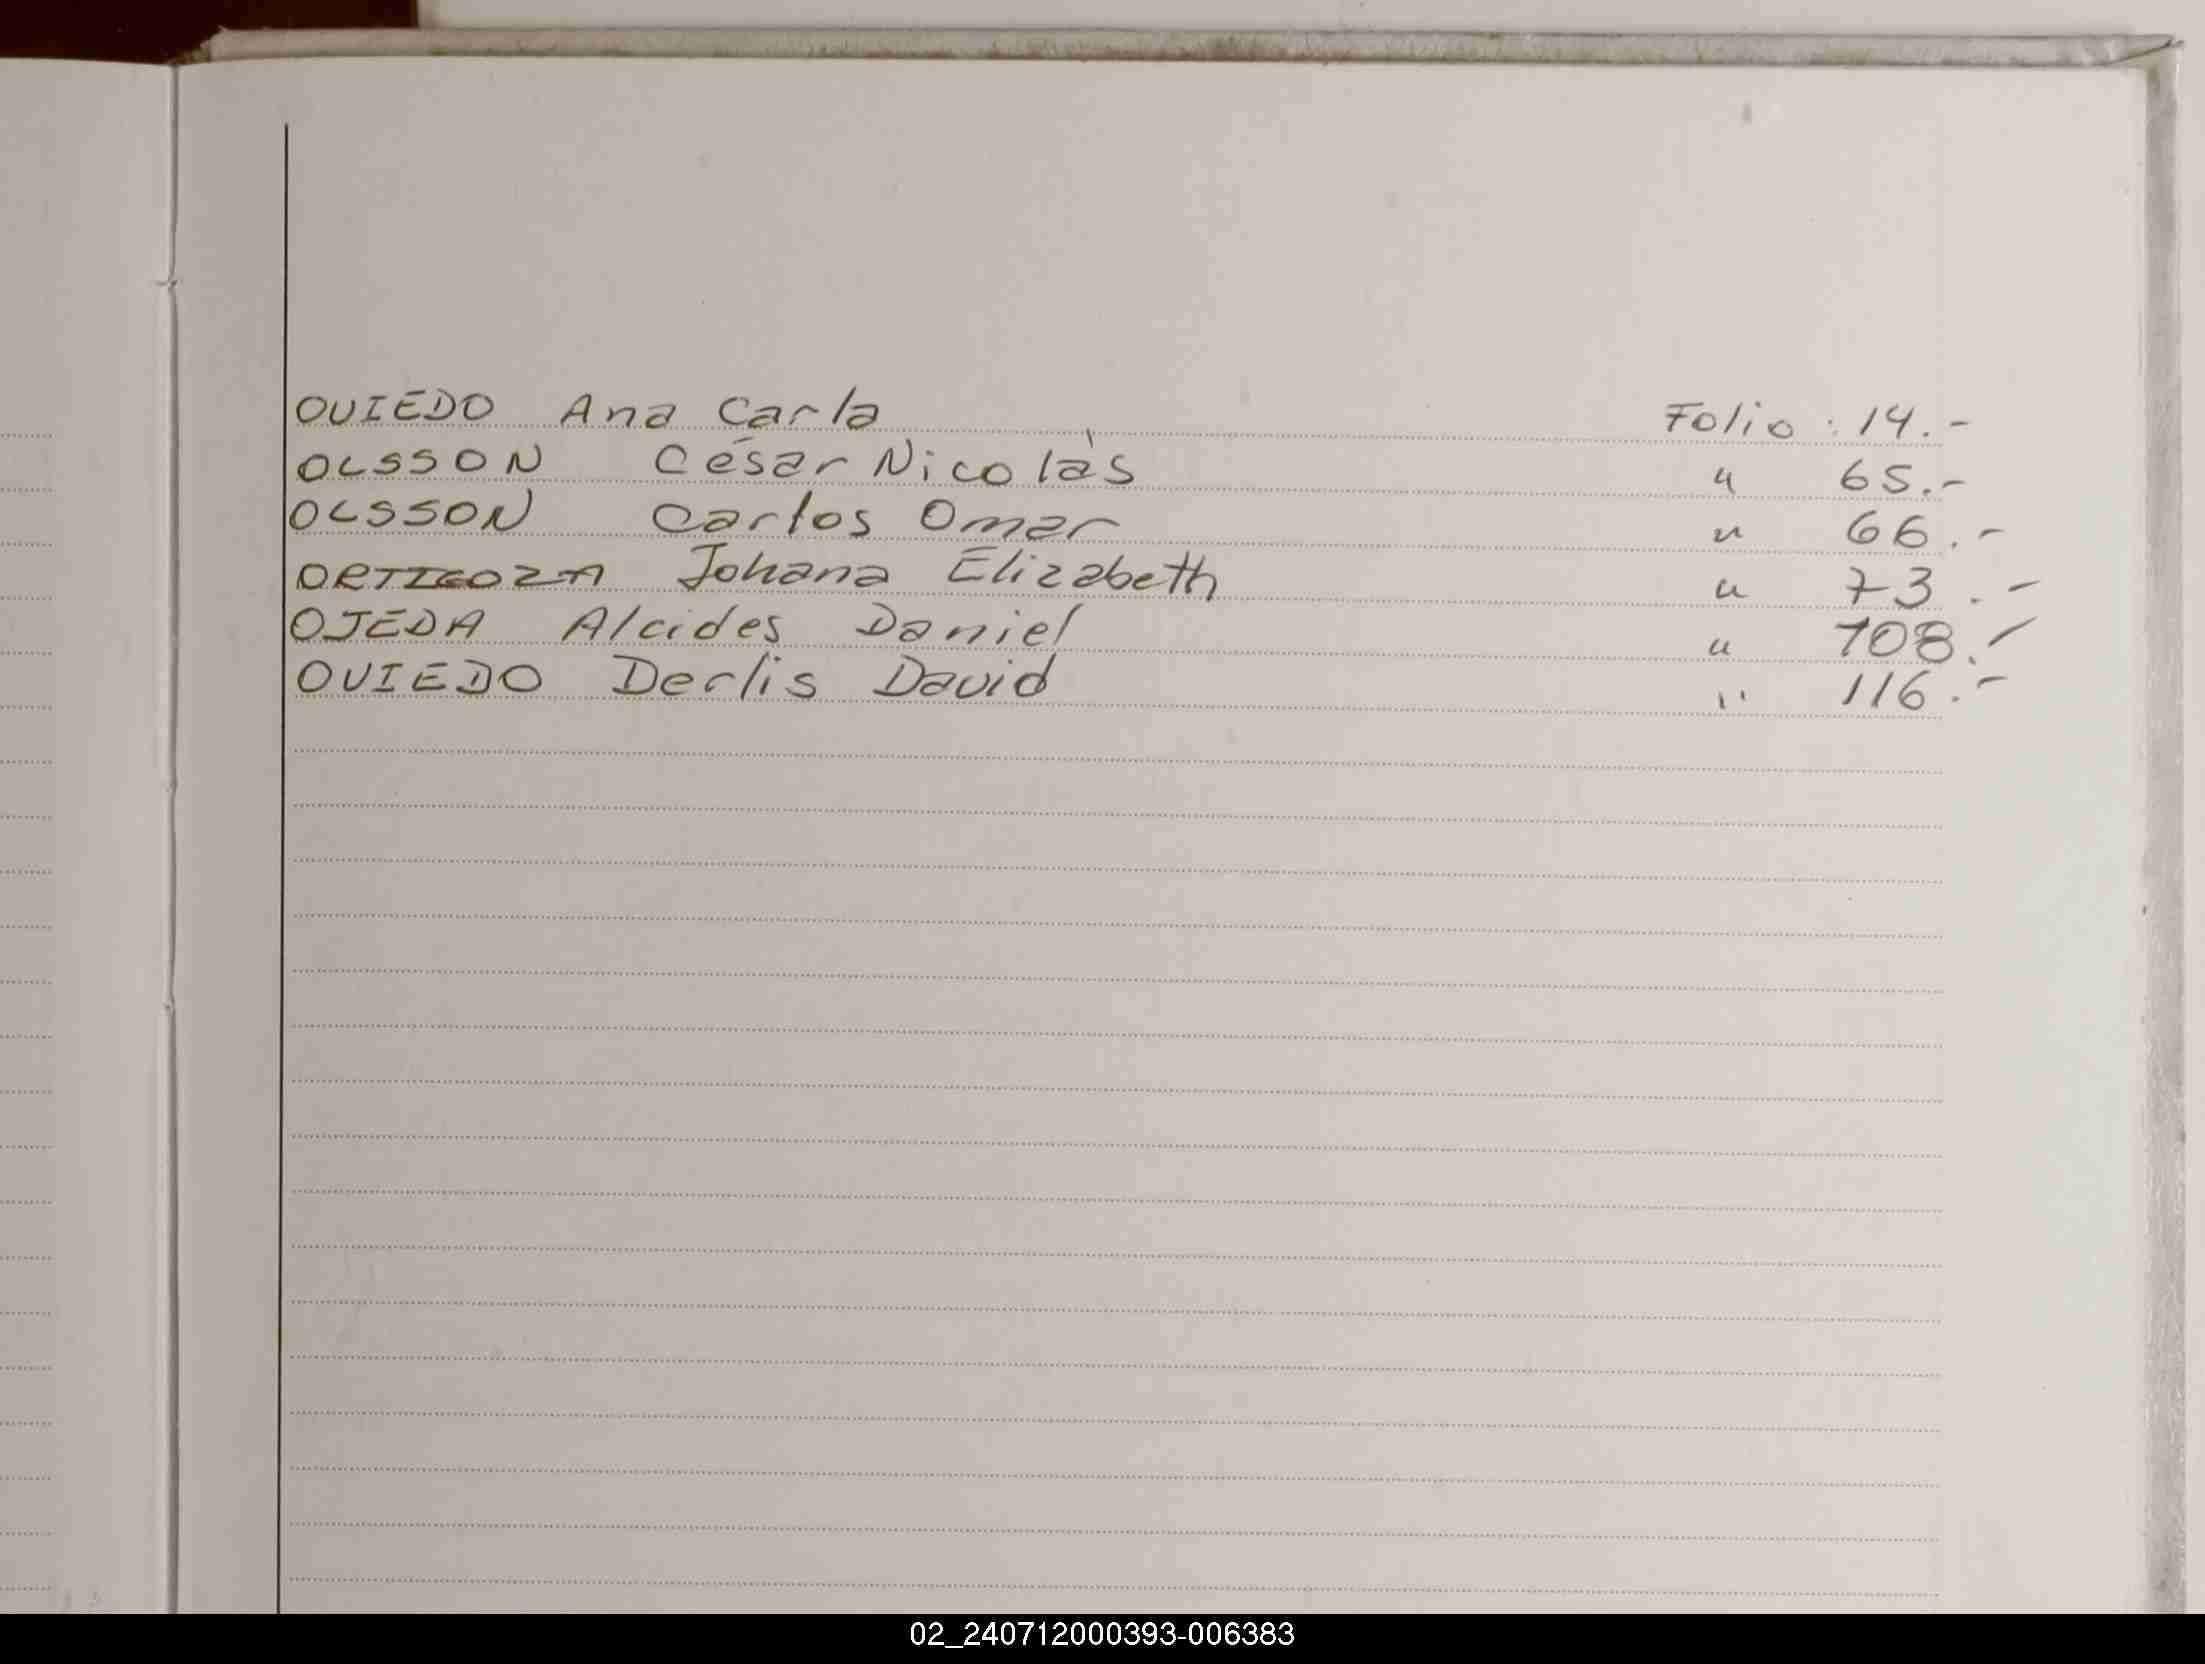 OVIEDO Ana Carla Folio : 14.-
OLSSON César Nicolás " 65.-
OLSSON Carlos Omar " 66.-
ORTIGOZA Johana Elizabeth " 73.-
OJEDA Alcides Daniel " 108.-
OVIEDO Derlis David " 116.-
02_240712000393-006383